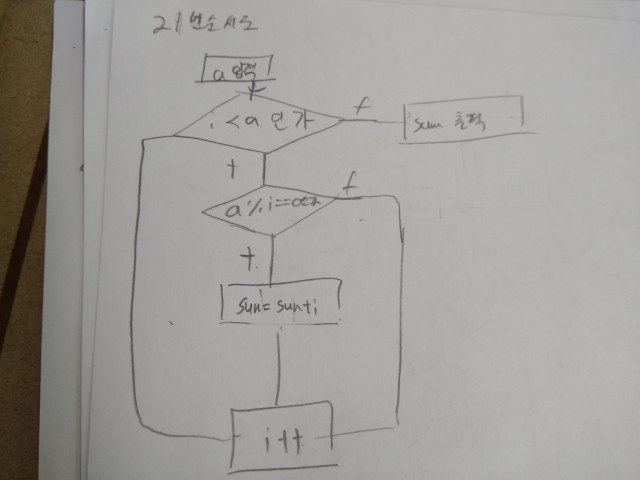 21번 순서도
a 입력
i < a 인가
f
sum 출력
t
a % i == 0
f
t
sum = sum+i
i++